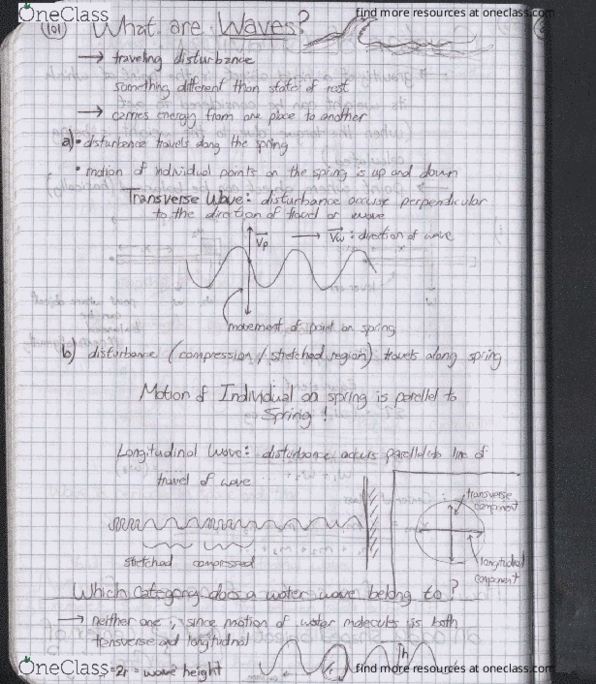 OneClass
find more resources at oneclass.com
(101) What are Waves?
→ traveling disturbance
something different than state of rest
→ carries energy from one place to another
a) • disturbance travels along the spring
• motion of individual points on the spring is up and down
Transverse Wave: disturbance occurs perpendicular
to the direction of travel of wave
Vp → Vw : direction of wave
movement of point on spring
b) disturbance (compression / stretched region) travels along spring
Motion of Individual on spring is parellel to
Spring !
Longitudinal Wave: disturbance occurs parallel to line of
travel of wave
transverse
component
longitudinal
component
stretched compressed
Which category does a water wave belong to?
→ neither one, since motion of water molecules is both
tensverse and longitudinal
h
=2r = wave height
OneClass
find more resources at oneclass.com